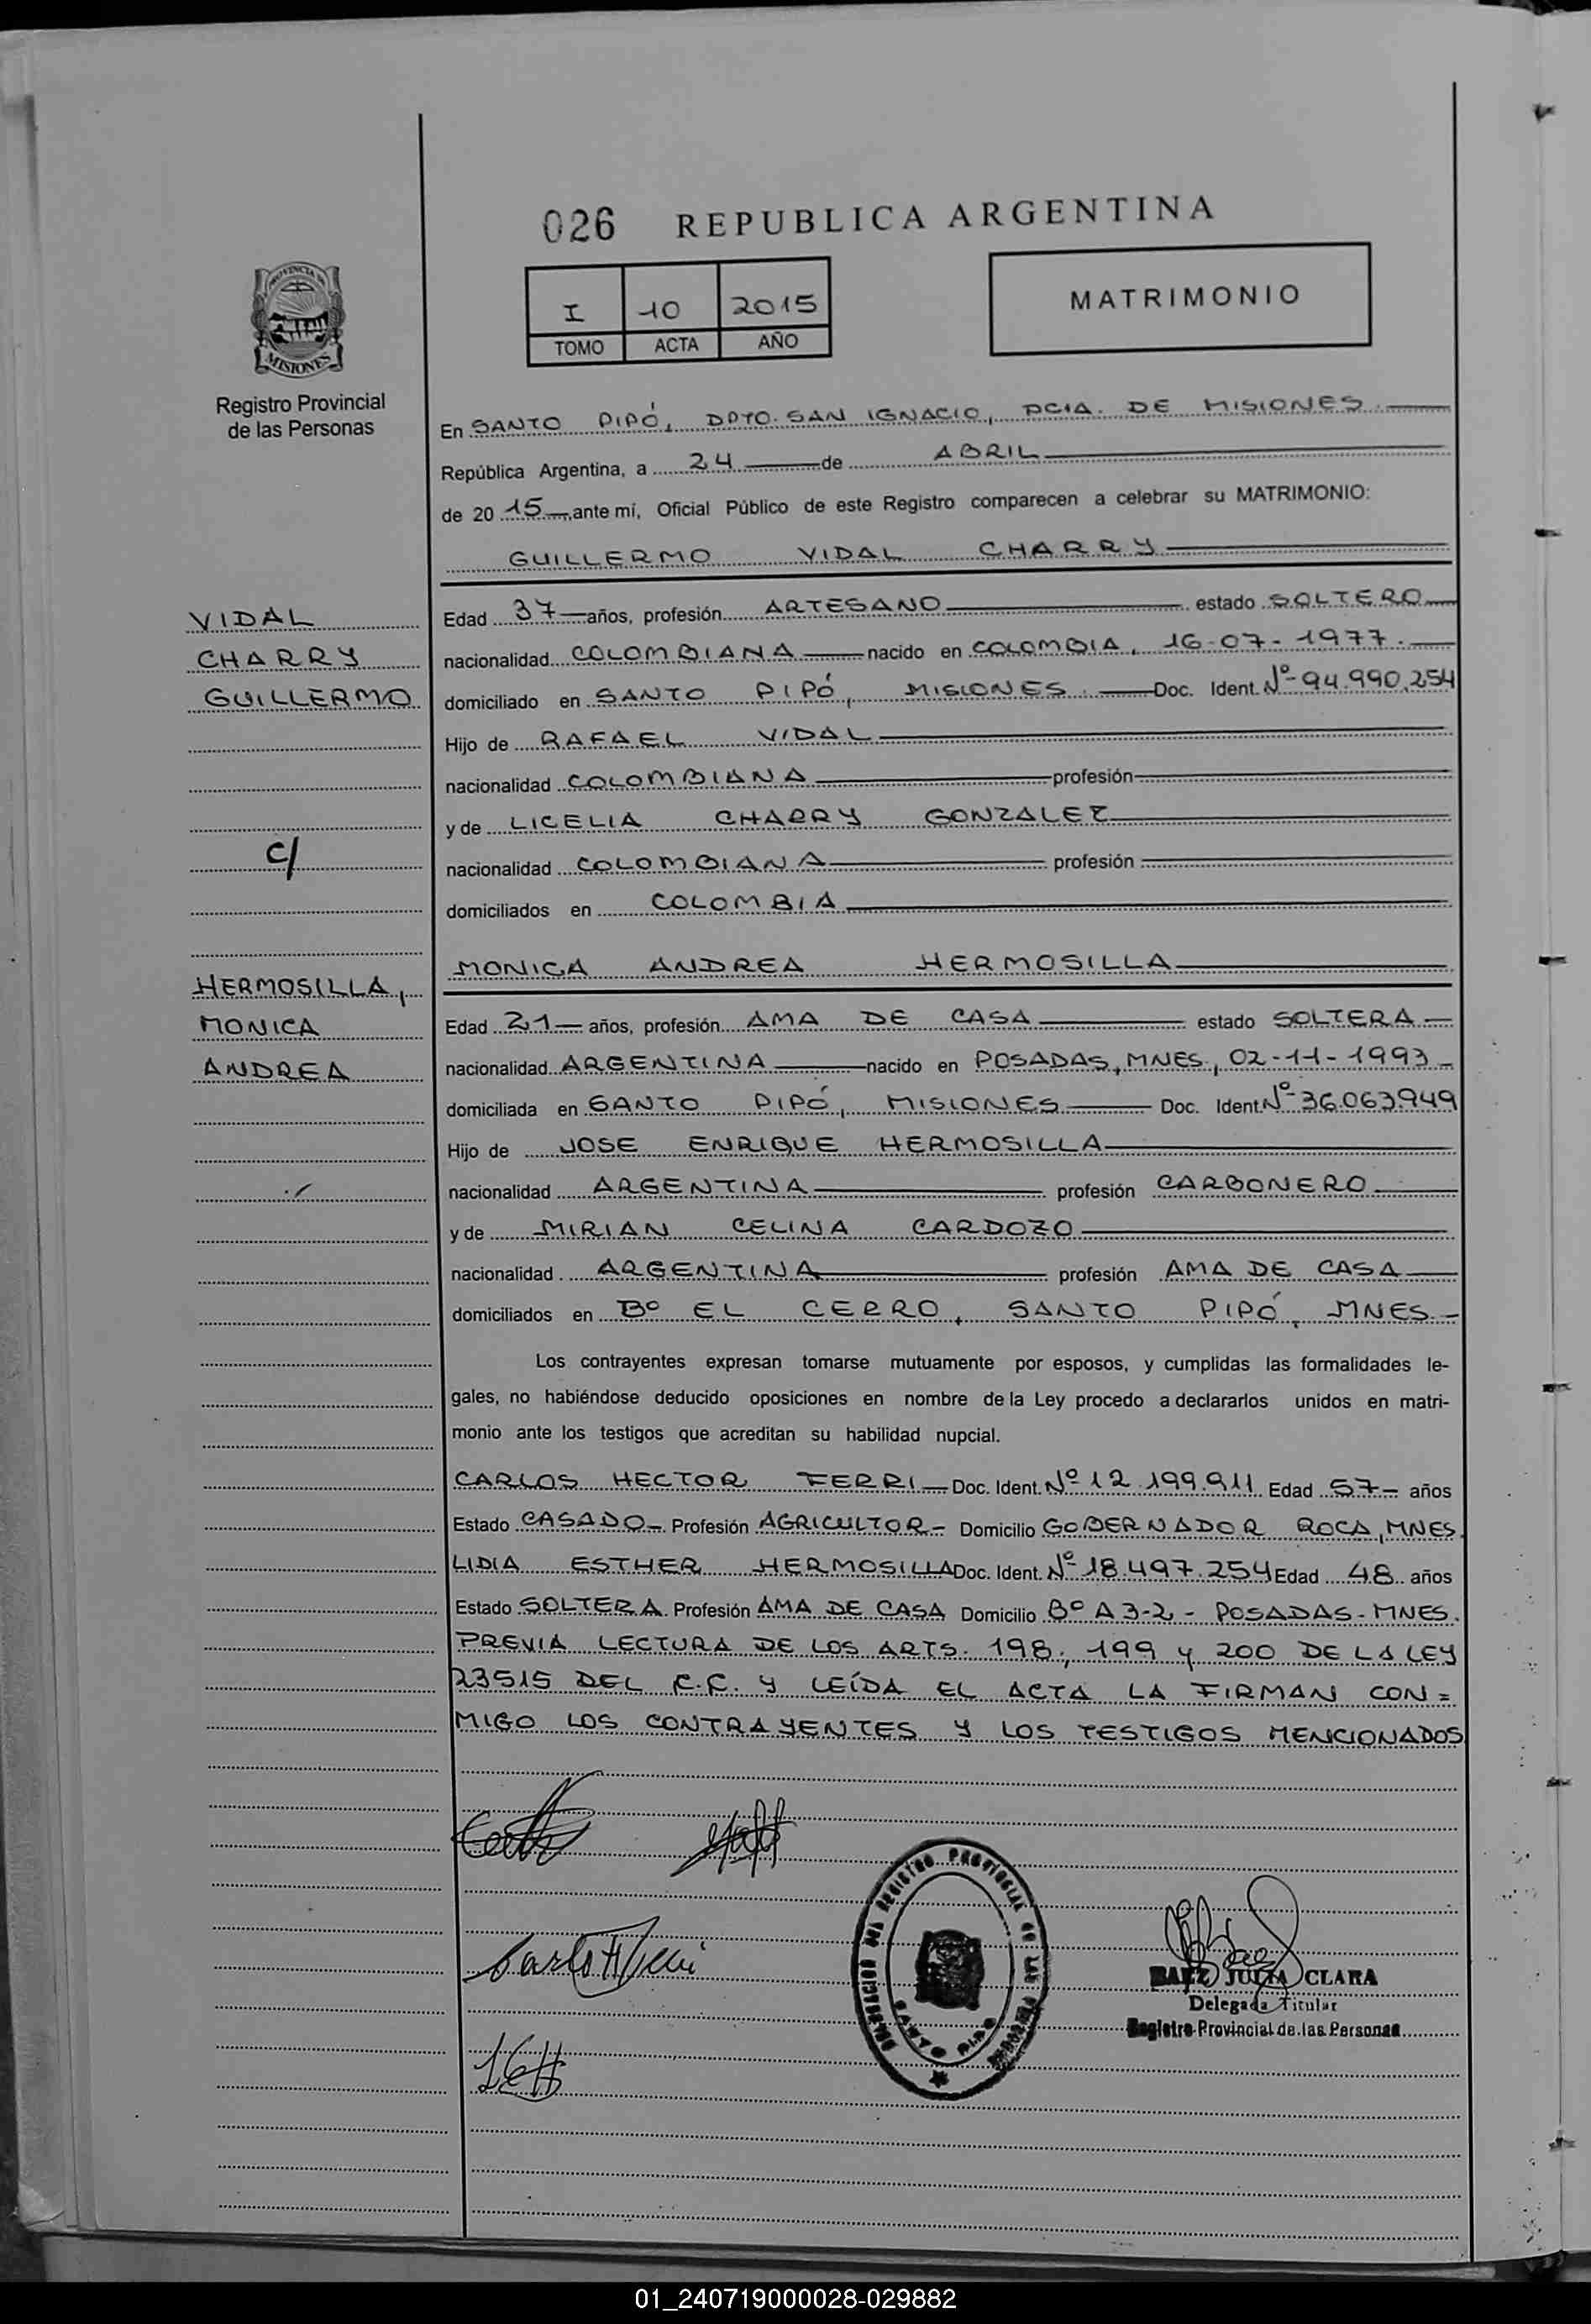 026 REPUBLICA ARGENTINA
PROVINCIA DE
MISIONES
Registro Provincial
de las Personas
I 10 2015
TOMO ACTA AÑO
MATRIMONIO
En SANTO PIPÓ, DPTO. SAN IGNACIO, PCIA. DE MISIONES.
República Argentina, a 24 de ABRIL
de 20 15 ante mí, Oficial Público de este Registro comparecen a celebrar su MATRIMONIO:
GUILLERMO VIDAL CHARRY
VIDAL
CHARRY
GUILLERMO
C/
HERMOSILLA,
MONICA
ANDREA
Edad 37 años, profesión ARTESANO estado SOLTERO
nacionalidad COLOMBIANA nacido en COLOMBIA, 16-07-1977.
domiciliado en SANTO PIPÓ, MISIONES. Doc. Ident. Nº 94.990.254
Hijo de RAFAEL VIDAL
nacionalidad COLOMBIANA profesión
y de LICELIA CHARRY GONZALEZ
nacionalidad COLOMBIANA profesión
domiciliados en COLOMBIA
MONICA ANDREA HERMOSILLA
Edad 21 años, profesión AMA DE CASA estado SOLTERA
nacionalidad ARGENTINA nacido en POSADAS, MNES, 02-11-1993
domiciliada en SANTO PIPÓ, MISIONES Doc. Ident Nº 36.063.949
Hijo de JOSE ENRIQUE HERMOSILLA
nacionalidad ARGENTINA profesión CARBONERO
y de MIRIAN CELINA CARDOZO
nacionalidad ARGENTINA profesión AMA DE CASA
domiciliados en Bº EL CERRO, SANTO PIPÓ, MNES
Los contrayentes expresan tomarse mutuamente por esposos, y cumplidas las formalidades le-
gales, no habiéndose deducido oposiciones en nombre de la Ley procedo a declararlos unidos en matri-
monio ante los testigos que acreditan su habilidad nupcial.
CARLOS HECTOR FERRI Doc. Ident. Nº 12.199.911 Edad 57 años
Estado CASADO Profesión AGRICULTOR Domicilio GOBERNADOR ROCA, MNES.
LIDIA ESTHER HERMOSILLA Doc. Ident. Nº 18.497.254 Edad 48 años
Estado SOLTERA Profesión AMA DE CASA Domicilio Bº A 3-2 - POSADAS - MNES.
PREVIA LECTURA DE LOS ARTS. 198, 199 y 200 DE LA LEY
23515 DEL C.C. Y LEÍDA EL ACTA LA FIRMAN CON=
MIGO LOS CONTRAYENTES Y LOS TESTIGOS MENCIONADOS
REGISTRO PROVINCIAL de LAS PERSONAS
SANTO PIPO
BAEZ JULIA CLARA
Delegada Titular
Registro Provincial de las Personas
01_240719000028-029882